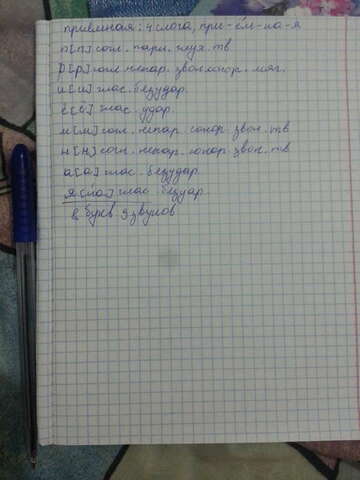 приёмная: 4 слога, при-ём-на-я
п[п] согл. парн. глух. тв
р[р] согл непар. звон. сонор. мяг.
и[и] глас. безудар.
ё[о] глас. удар.
м[м] согл. непар. сонор. звон. тв
н[н] согл. непар. сонор. звон. тв
а[а] глас. безудар.
я[йа] глас. безудар.
8 букв 9 звуков